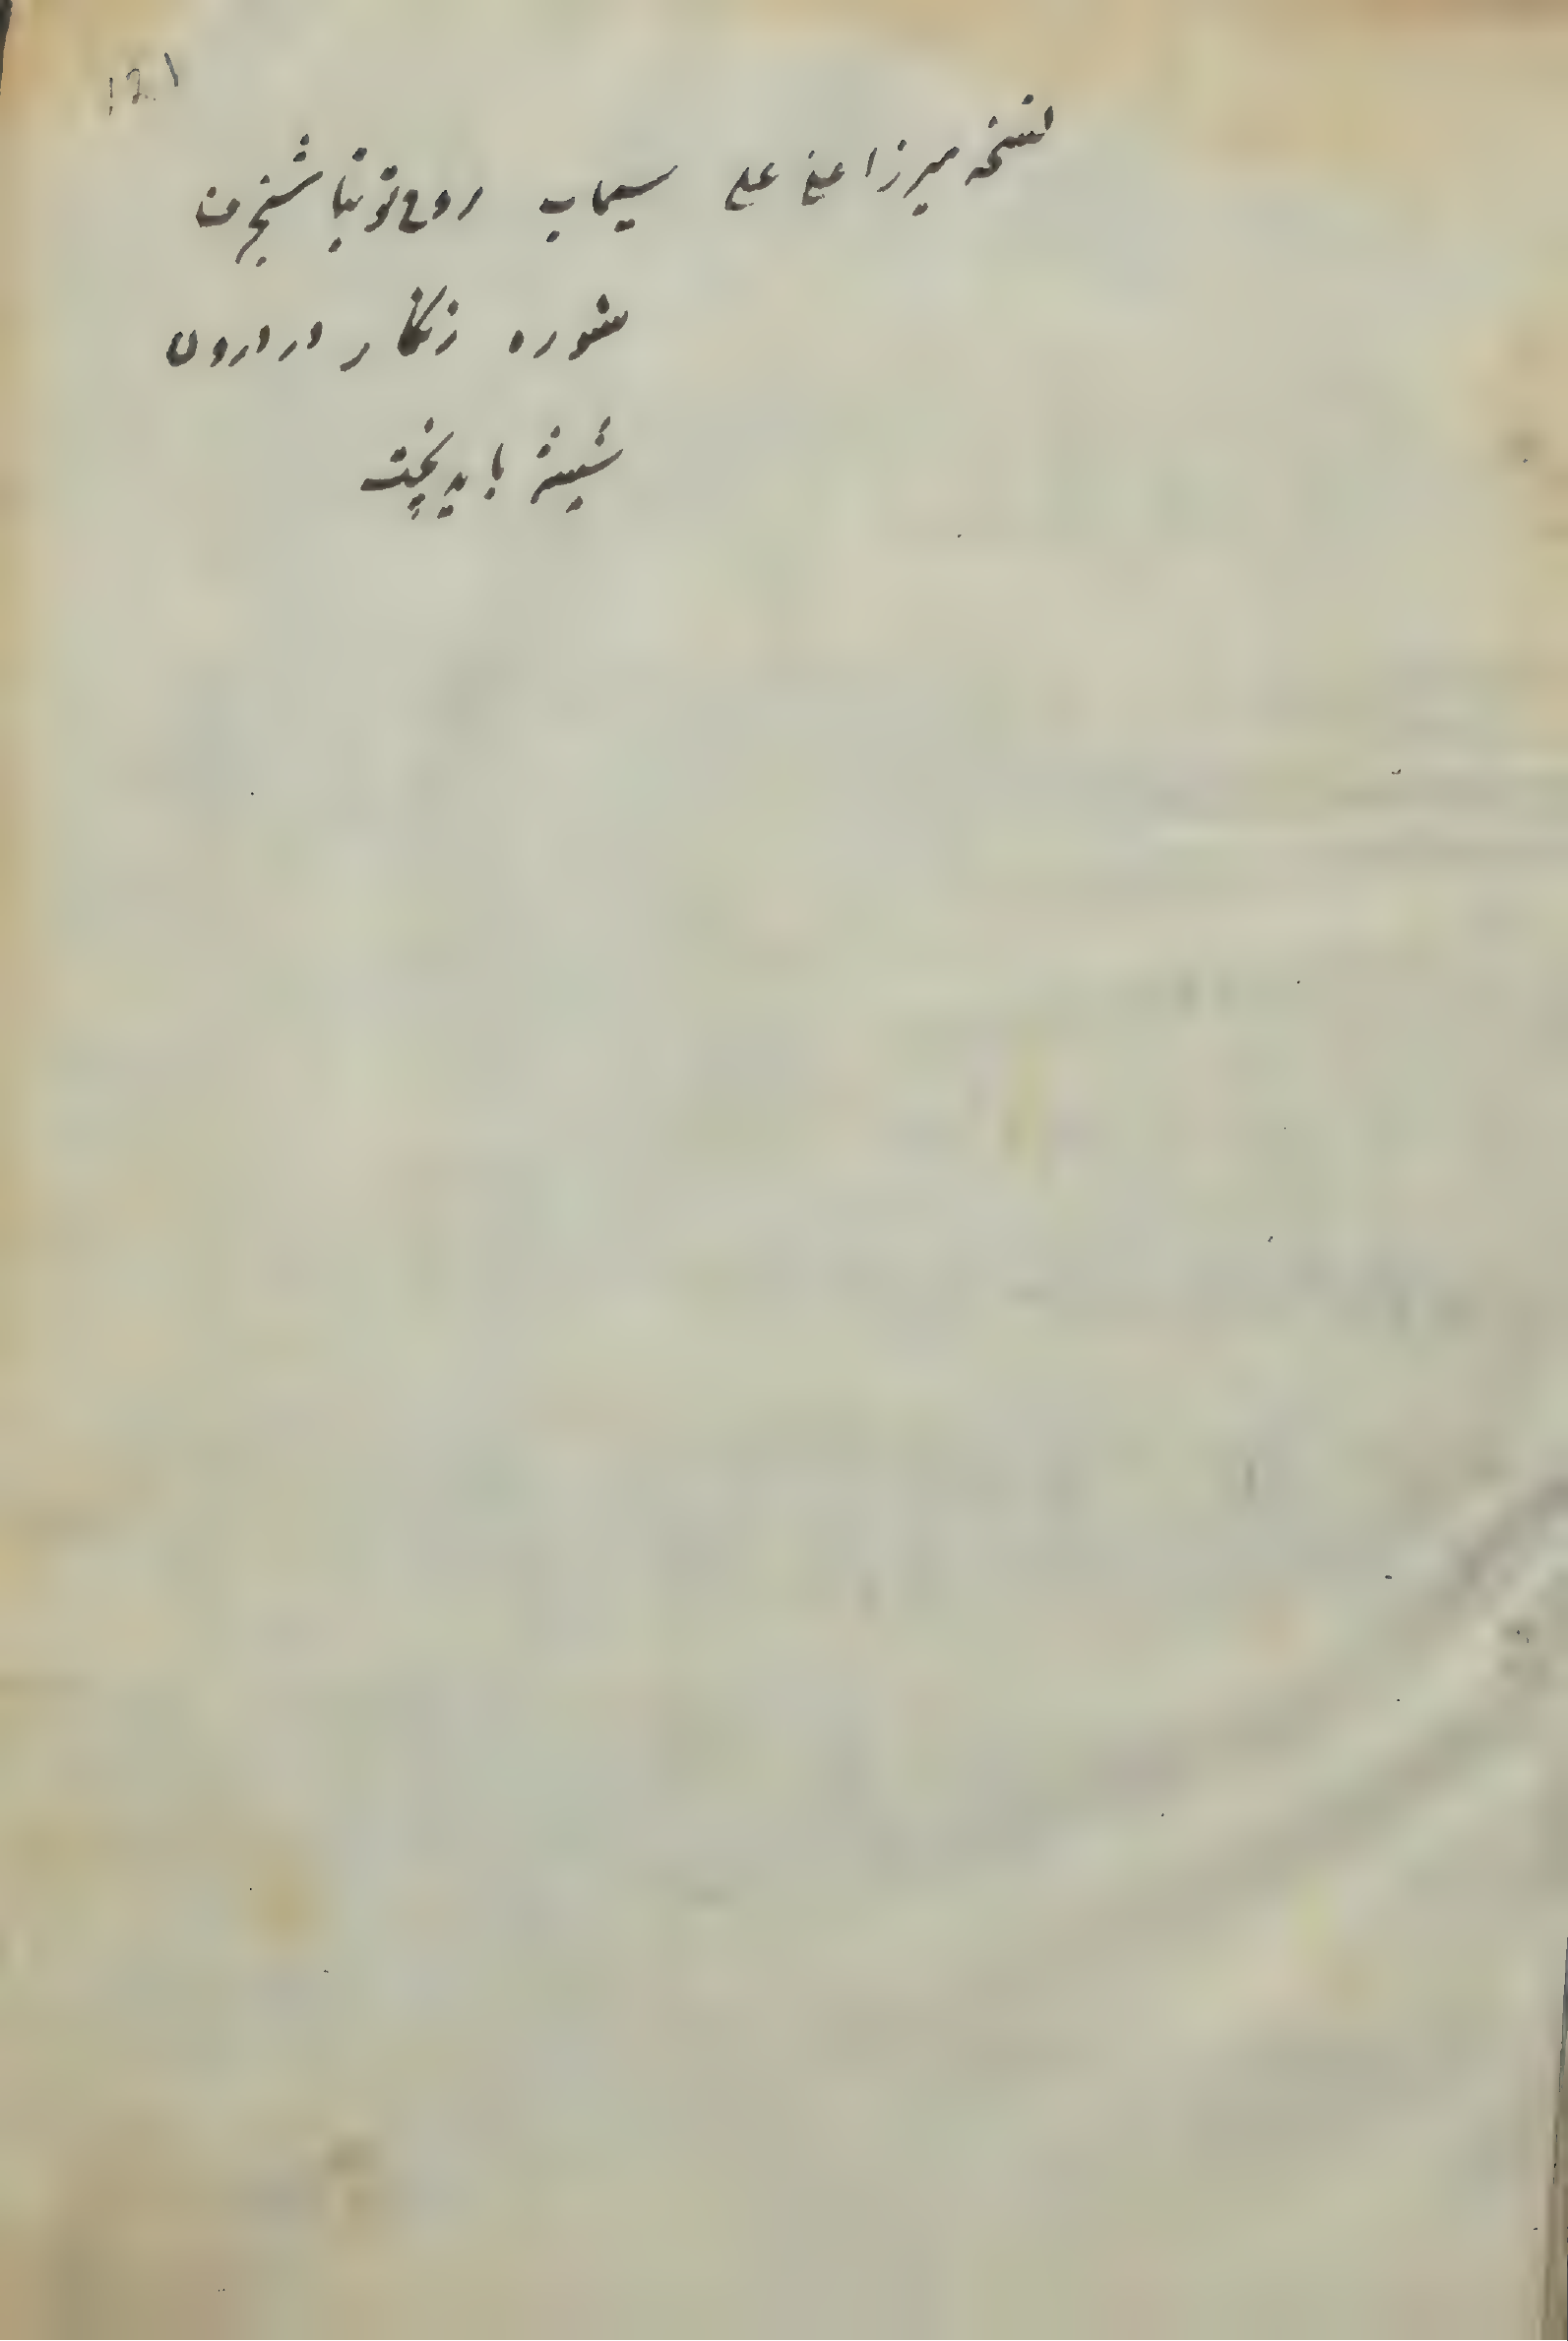 ۱۲۱
نسخه میرزا علی سیماب روح توتیا شنجرف
شوره زنگار در درون
شیشه باید پخت